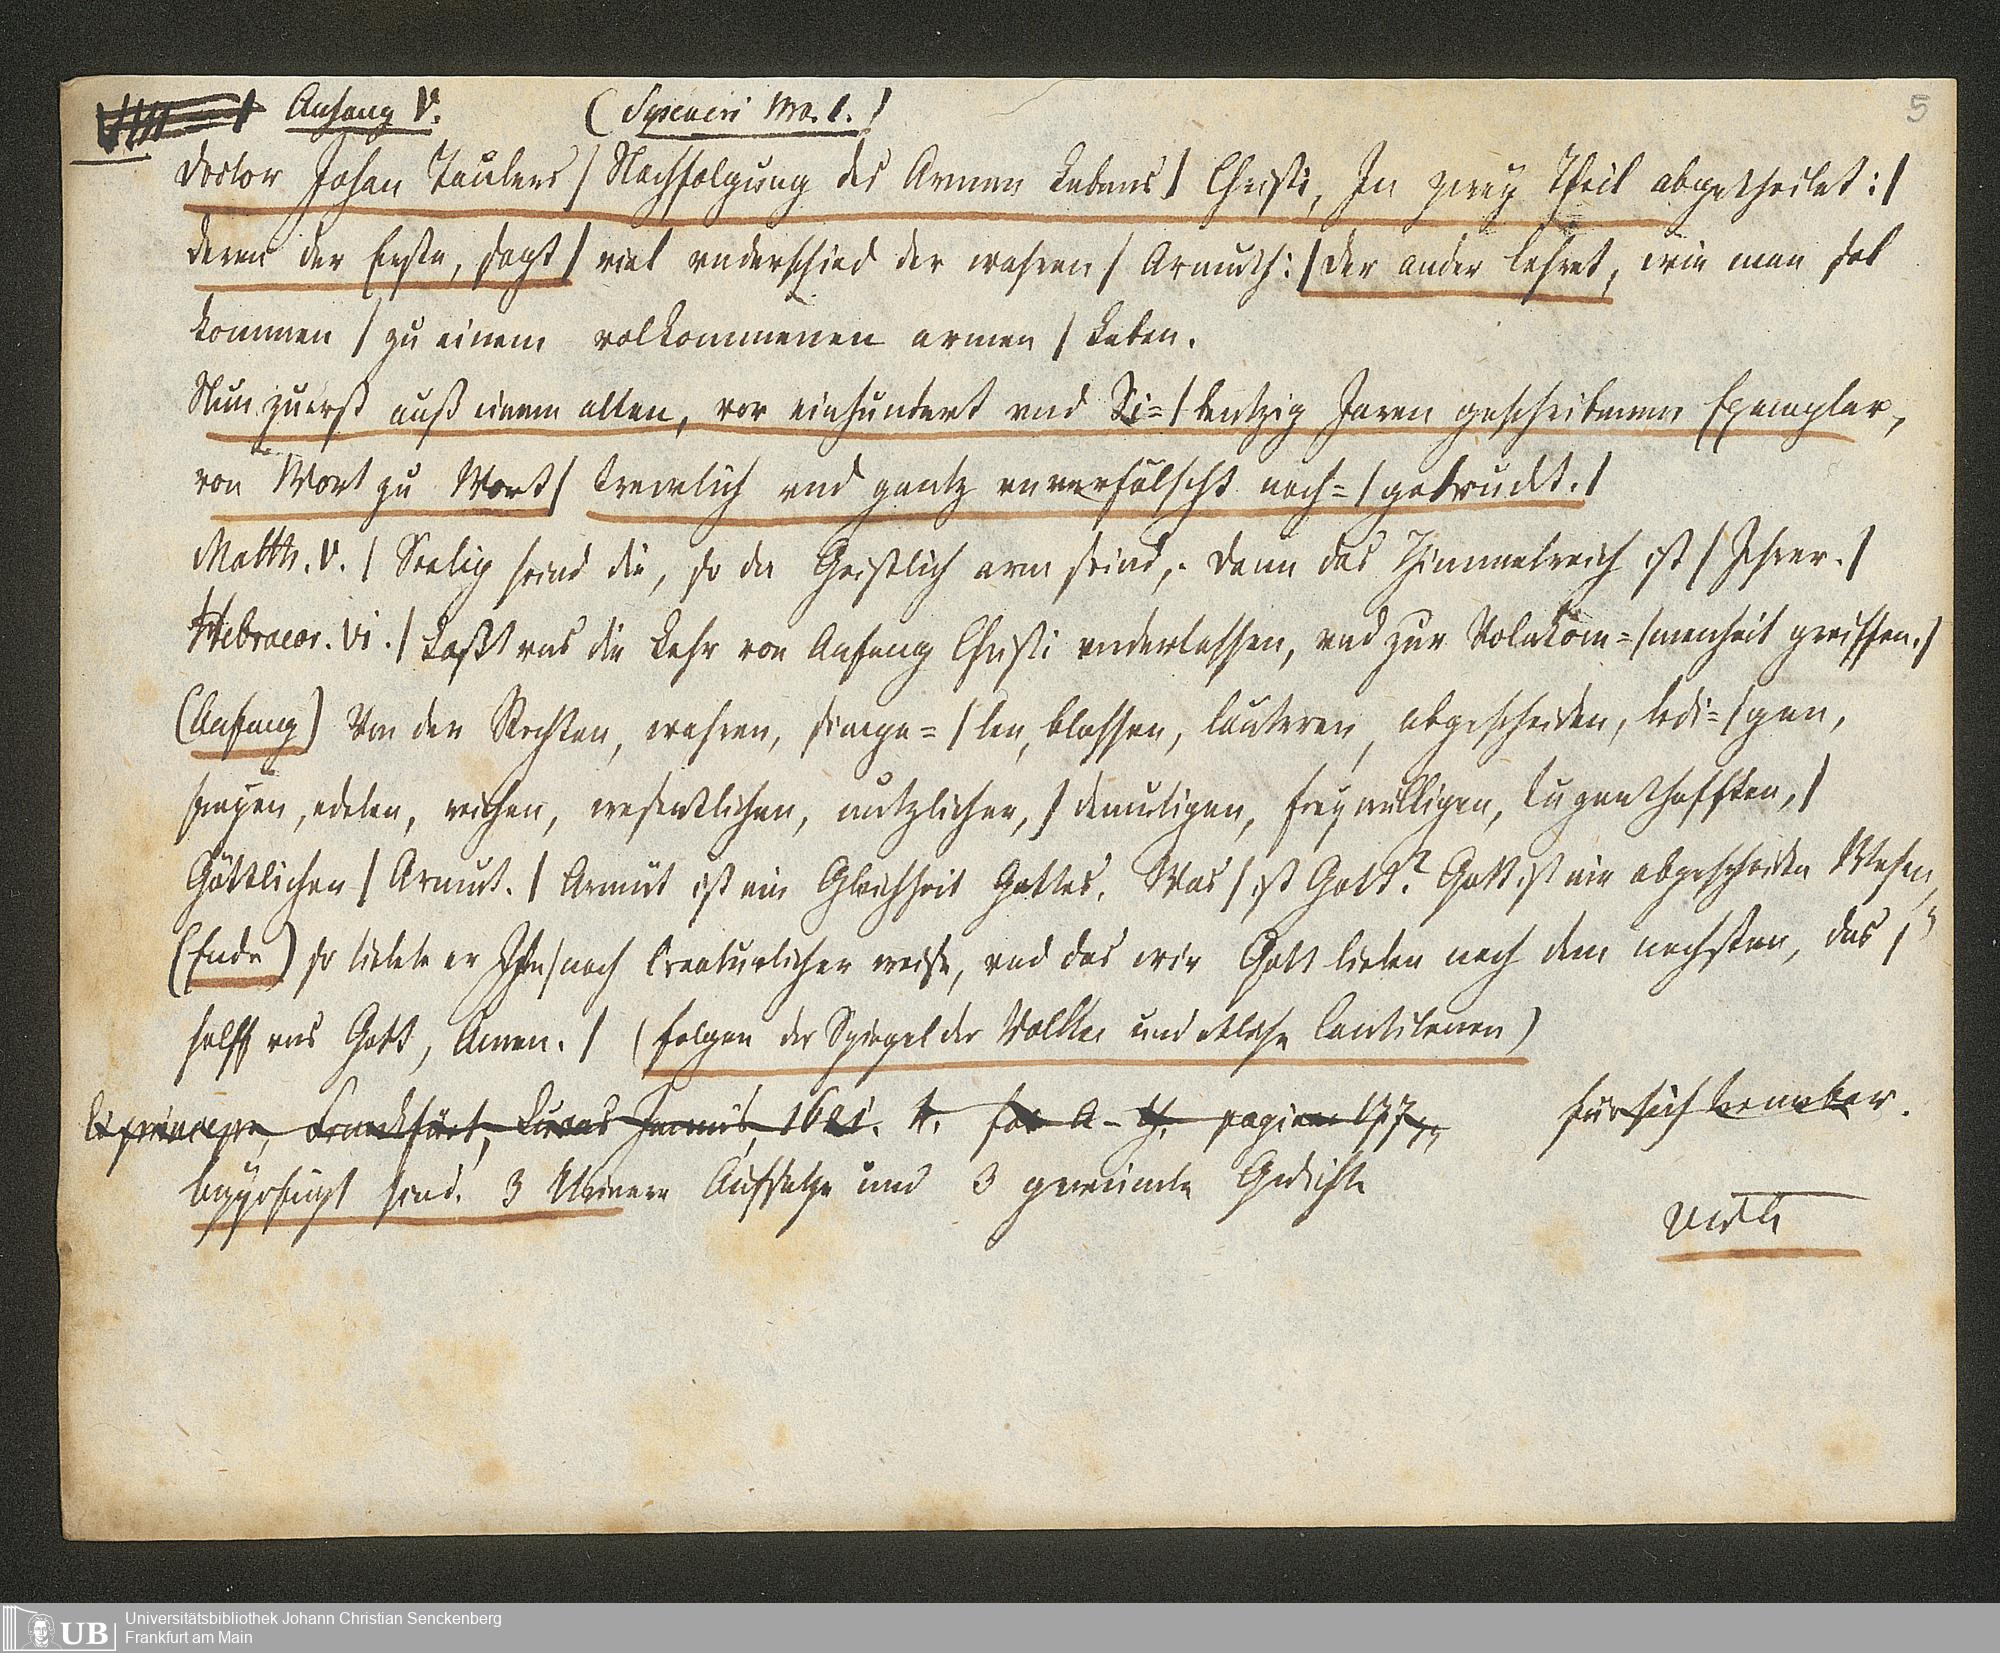 Anfang V. (Speneri No. 1.)
5
Doctor Johan Taulers / Nachfolgung des Armen Lebens / Christi, In zwey Theil abgetheilet: /
deren der Erste, sagt / viel vnderschied der wahren / Armuth: / der ander lehret, wie man sol
kommen / zu einem volkommenen armen / Leben.
Nun zuerst auß einem alten, vor einhundert vnd Si= / bentzig Jaren geschribenen Exemplar,
von Wort zu Wort / trewlich vnd gantz vnverfälscht nach= / getruckt. /
Matth. V. / Seelig seind die, so da Geistlich arm seind, denn das Himmelreich ist / Jhrer. /
Hebraeor. VI. / Laßt vns die Lehr von Anfang Christi vnderlassen, vnd zur Volnkom= / menheit greiffen. /
(Anfang) Von der Rechten, wahren, simpe= / len, blossen, lauteren, abgescheiden, ledi= / gen,
freyen, edelen, reichen, wesentlichen, nutzlichen, / demutigen, freywilligen, tugenthafften, /
Göttlichen / Armut. / Armut ist ein Gleichheit Gottes. Was / ist Gott? Gott ist ein abgescheiden Wesen,
(Ende) so liebete er Jhn / nach Creaturlicher weise, vnd das wir Gott lieben nach dem nechsten, das /
helff vns Gott, Amen. / (folgen der Spiegel der und etliche Cantilenen)
Ed. princeps, Frankfurt, Lucas Jennis, 1621. 4. A - pagina
beygefügt sind. 3 kleinere Aufsätze und 3 gereimte Gedichte